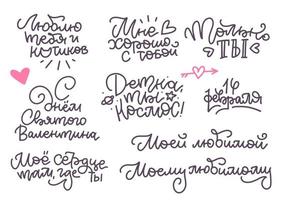 Люблю
тебя и
котиков
Мне
хорошо
с тобой
Только
ТЫ
С
Днём
Святого
Валентина
Детка,
ты
Космос!
14
февраля
Моё сердце
там, где ты
Моей любимой
Моему любимому